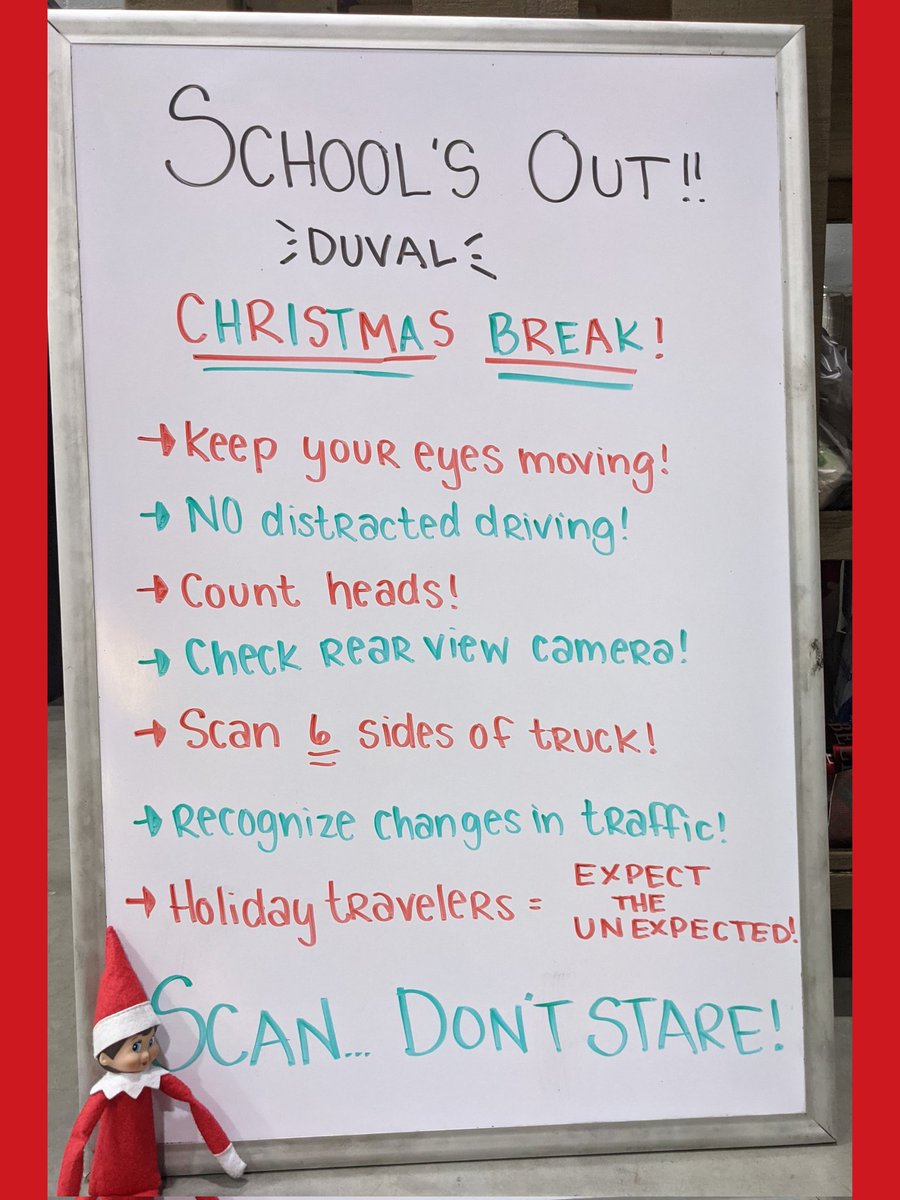 SCHOOL'S OUT!!
DUVAL
CHRISTMAS BREAK!
→ Keep your eyes moving!
→ NO distracted driving!
→ Count heads!
→ Check rear view camera!
→ Scan 6 sides of truck!
→ Recognize changes in traffic!
→ Holiday travelers = EXPECT
THE
UNEXPECTED!
SCAN... DON'T STARE!